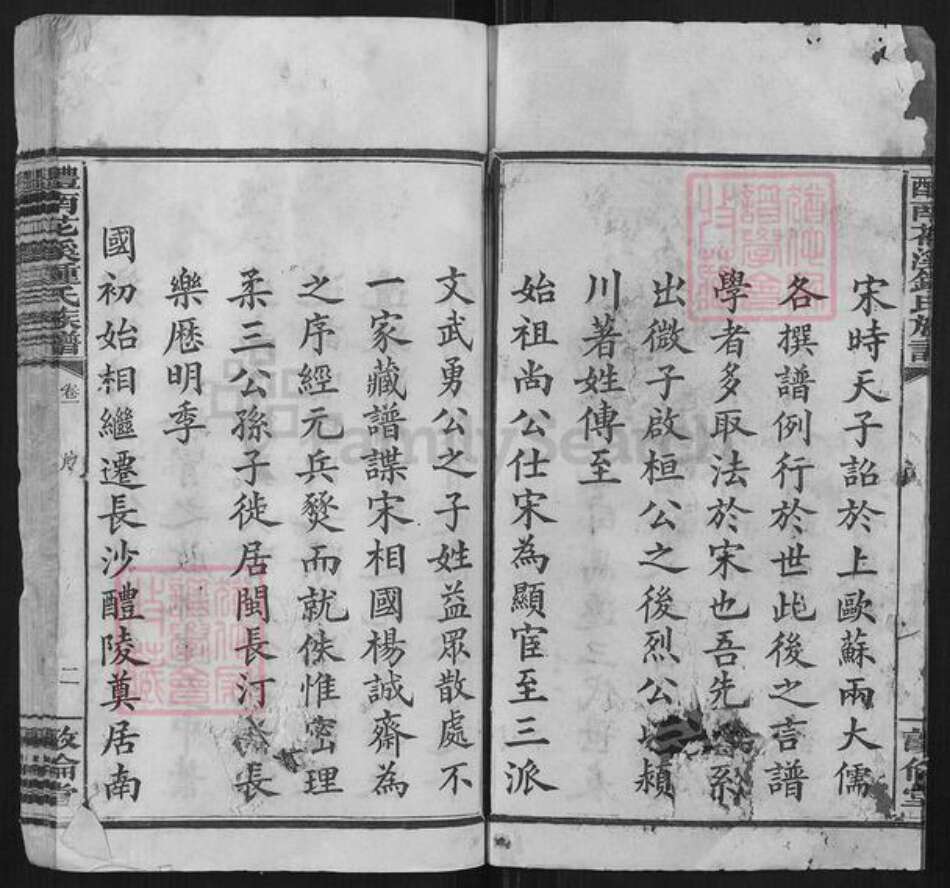 宋時天子詔於上歐蘇兩大儒
各撰譜例行於世此後之言譜
學者多取法於宋也吾先系
出微子啟桓公之後烈公潁
川著姓傳至
始祖尚公仕宋為顯宦至三派
文武勇公之子姓益眾散處不
一家藏譜諜宋相國楊誠齋為
之序經元兵燹而就佚惟密理
柔三公孫子徙居閩長汀長
樂歷明季
國初始相繼遷長沙醴陵奠居南
醴南花溪鍾氏族譜
卷一
序
二
敦倫堂
FamilySearch